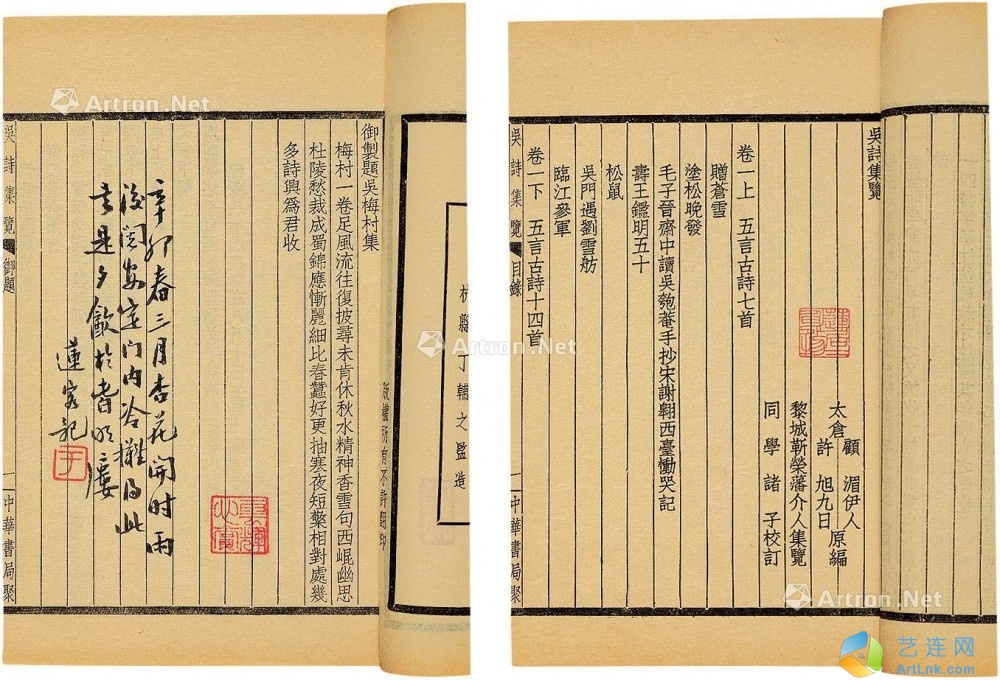 杭縣丁輔之監造
版權所有不許翻印
御製題吳梅村集
梅村一卷足風流往復披尋未肯休秋水精神香雪句西崐幽思
杜陵愁裁成蜀錦應慚麗細比春蠶好更抽寒夜短檠相對處幾
多詩興爲君收
辛卯春三月杏花開时雨
後安定门内冷攤得此
是夕飲於
蓮客記
吳詩集覽
御題
一
中華書局聚
吳詩集覽
太倉
顧湄伊人
許旭九日
原編
黎城靳榮藩介人集覽
同學諸子校訂
卷一上 五言古詩七首
贈蒼雪
塗松晚發
毛子晉齋中讀吳匏菴手抄宋謝翱西臺慟哭記
壽王鑑明五十
松鼠
吳門遇劉雪舫
臨江參軍
卷一下 五言古詩十四首
吳詩集覽
目錄
一
中華書局聚
Artron.Net
Artron.Net
Artron.Net
艺连网
ArtLnk.com